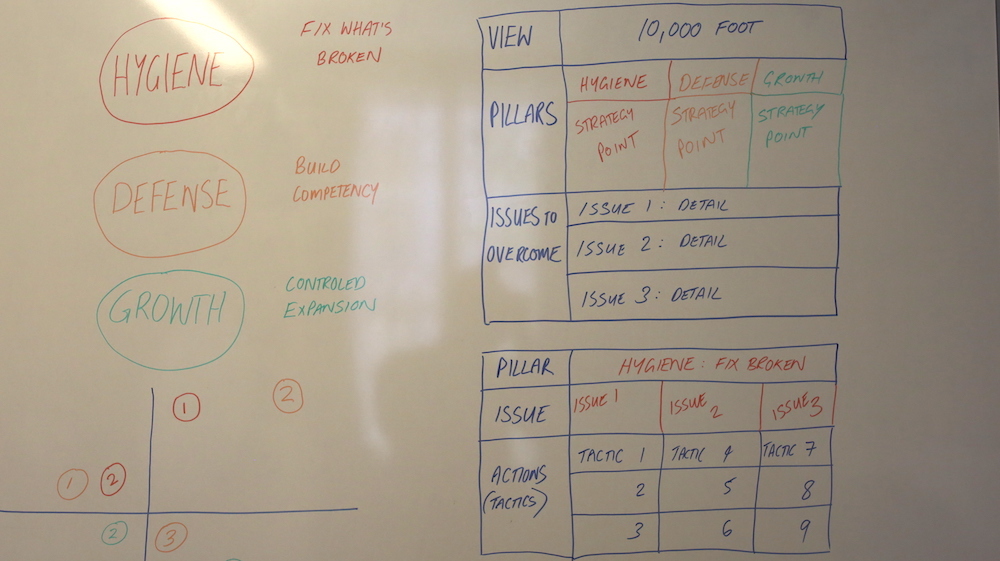 HYGIENE
FIX WHAT'S
BROKEN
DEFENSE
BUILD
COMPETENCY
GROWTH
CONTROLED
EXPANSION
1
2
1
2
2
3
VIEW 10,000 FOOT
PILLARS
HYGIENE DEFENSE GROWTH
STRATEGY POINT
STRATEGY POINT
STRATEGY POINT
ISSUES TO
OVERCOME
ISSUE 1: DETAIL
ISSUE 2: DETAIL
ISSUE 3: DETAIL
PILLAR HYGIENE: FIX BROKEN
ISSUE ISSUE 1 ISSUE 2 ISSUE 3
ACTIONS
(TACTICS)
TACTIC 1 TACTIC 4 TACTIC 7
2 5 8
3 6 9